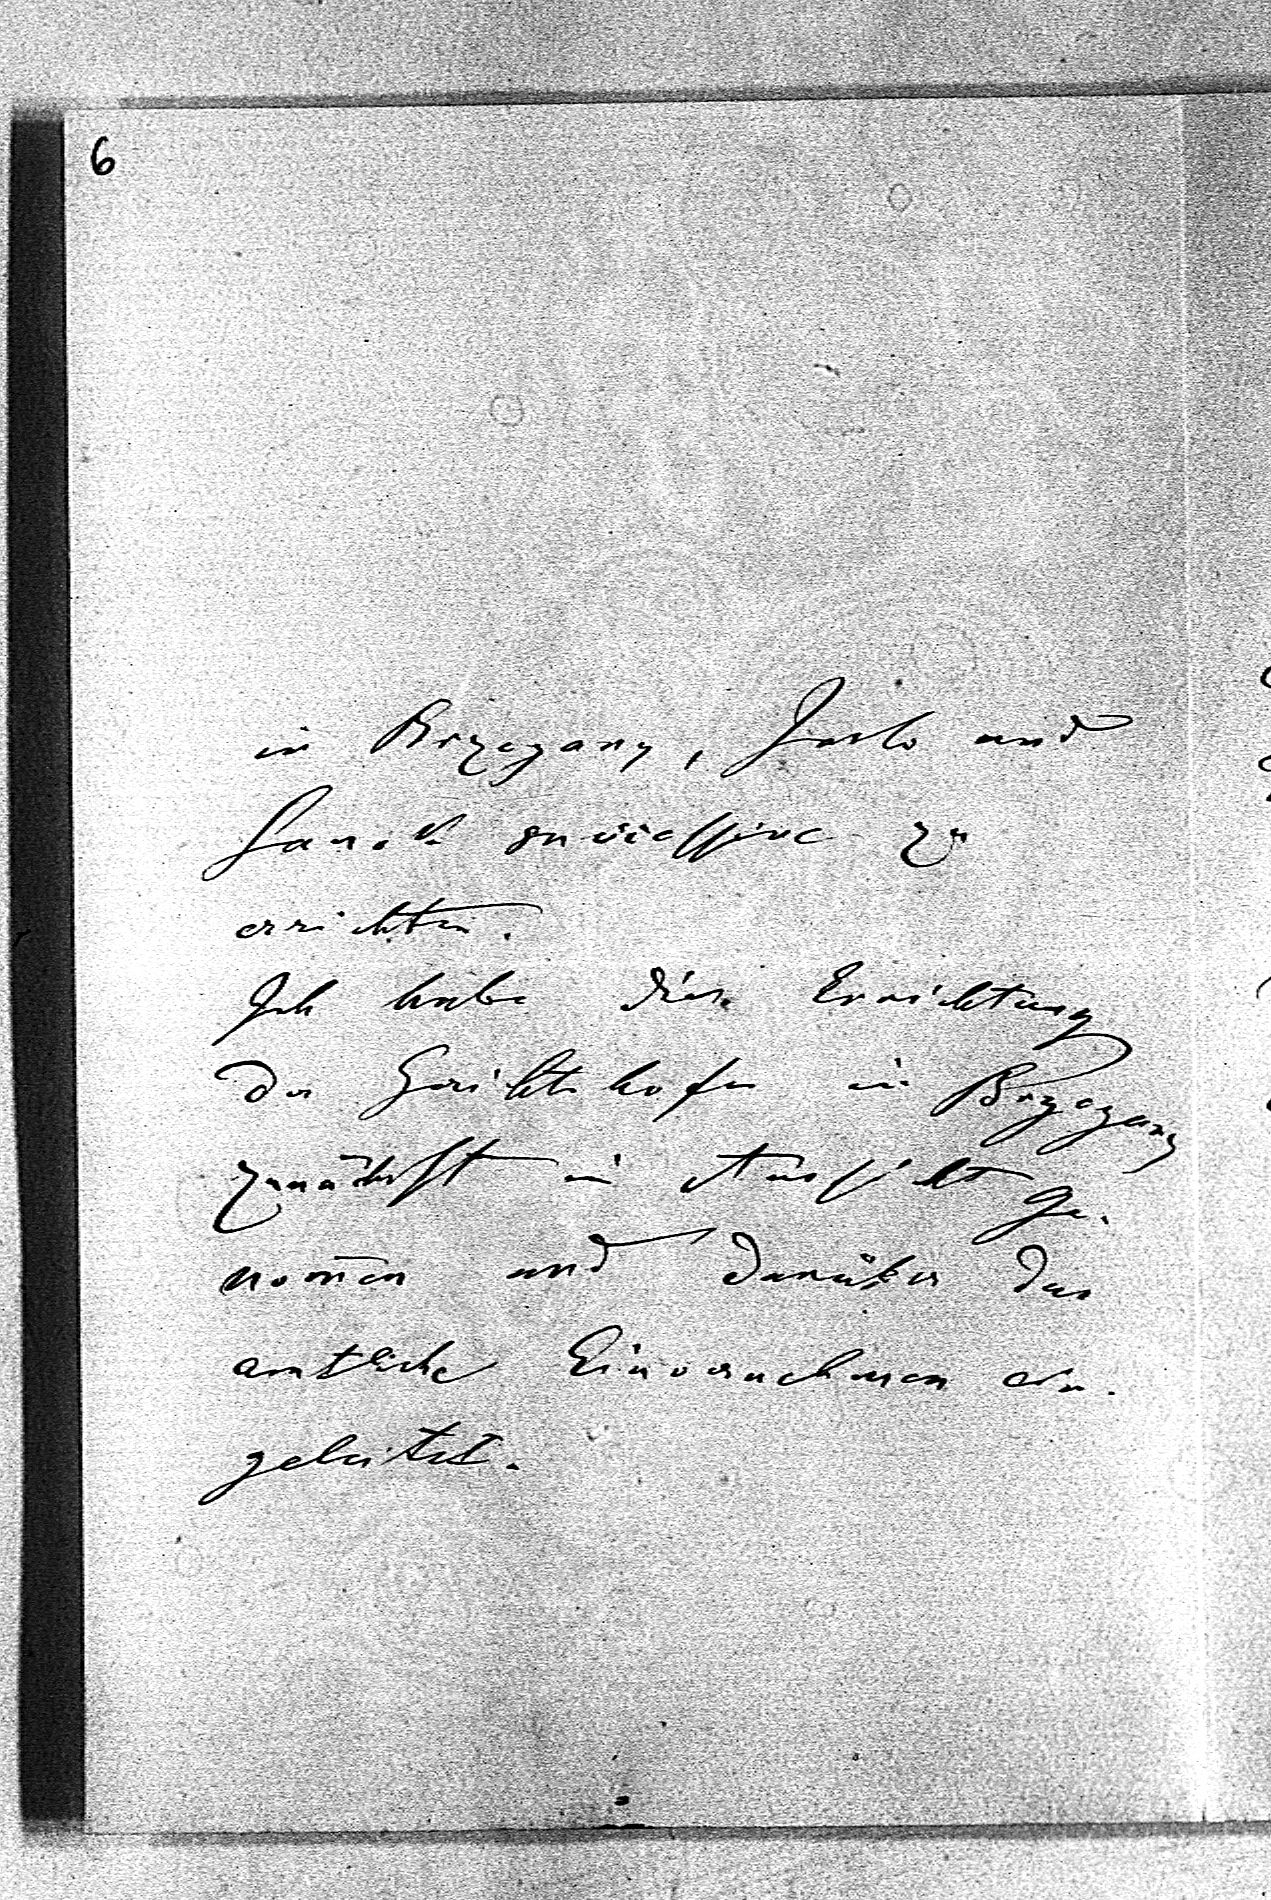 6
in Brzezany, Jaslo und
Sanok successive zu
errichten.
Ich habe diese Errichtung
des Gerichtshofes in Brzezany
zunächst in Aussicht ge-
nom̄en und darüber das
amtliche Einvernehmen ein-
geleitet.